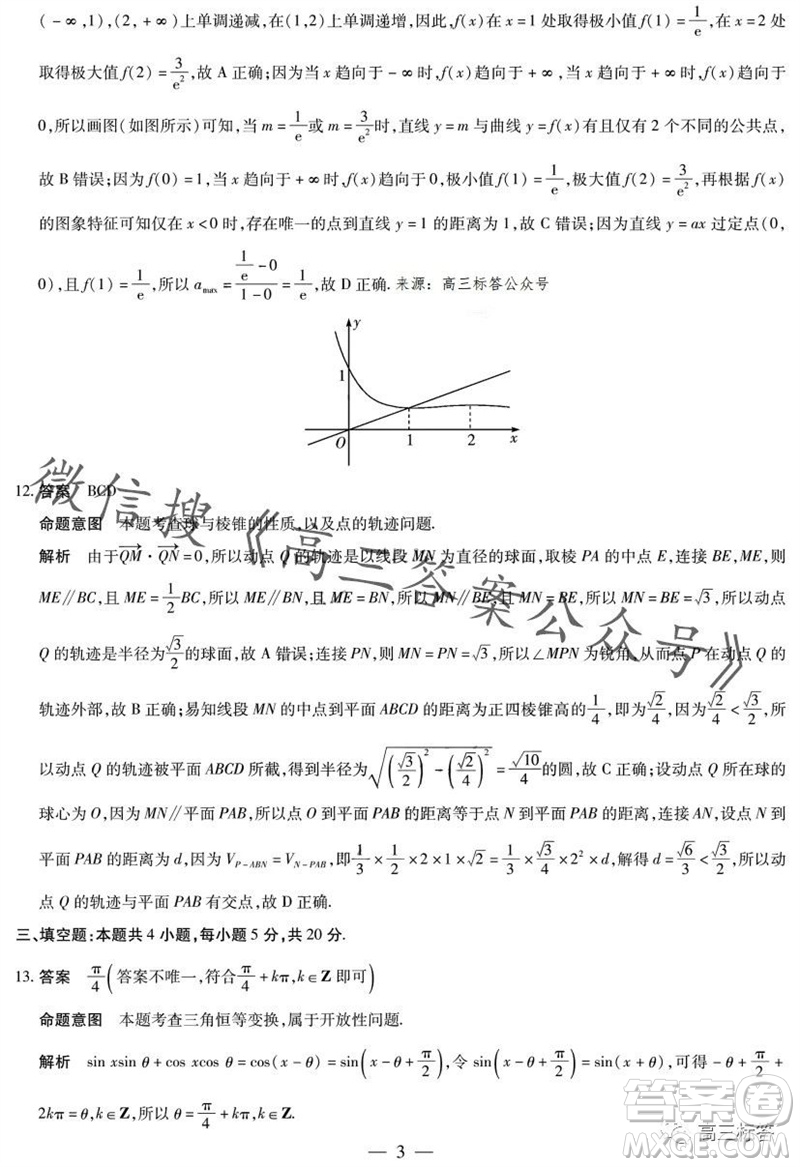 (－∞,1),(2,＋∞)上单调递减,在(1,2)上单调递增,因此,f(x)在 x＝1 处取得极小值 f(1)＝1/e,在 x＝2 处
取得极大值 f(2)＝3/e²,故 A 正确;因为当 x 趋向于－∞时,f(x)趋向于＋∞,当 x 趋向于＋∞时,f(x)趋向于
0,所以画图(如图所示)可知,当 m＝1/e 或 m＝3/e² 时,直线 y＝m 与曲线 y＝f(x)有且仅有 2 个不同的公共点,
故 B 错误;因为 f(0)＝1,当 x 趋向于＋∞时,f(x)趋向于 0,极小值 f(1)＝1/e,极大值 f(2)＝3/e²,再根据 f(x)
的图象特征可知仅在 x＜0 时,存在唯一的点到直线 y＝1 的距离为 1,故 C 错误;因为直线 y＝ax 过定点(0,
0),且 f(1)＝1/e,所以 a_max＝(1/e－0)/(1－0)＝1/e,故 D 正确. 来源：高三标答公众号
y
1
O 1 2 x
12. 答案 BCD
命题意图 本题考查球与棱锥的性质,以及点的轨迹问题.
解析 由于 QM→·QN→＝0,所以动点 Q 的轨迹是以线段 MN 为直径的球面,取棱 PA 的中点 E,连接 BE,ME,则
ME∥BC,且 ME＝1/2BC,所以 ME∥BN,且 ME＝BN,所以 MN∥BE,且 MN＝BE,所以 MN＝BE＝√3,所以动点
Q 的轨迹是半径为 √3/2 的球面,故 A 错误;连接 PN,则 MN＝PN＝√3,所以∠MPN 为锐角,从而点 P 在动点 Q 的
轨迹外部,故 B 正确;易知线段 MN 的中点到平面 ABCD 的距离为正四棱锥高的 1/4,即为 √2/4,因为 √2/4＜√3/2,所
以动点 Q 的轨迹被平面 ABCD 所截,得到半径为 √((√3/2)²－(√2/4)²)＝√10/4 的圆,故 C 正确;设动点 Q 所在球的
球心为 O,因为 MN∥平面 PAB,所以点 O 到平面 PAB 的距离等于点 N 到平面 PAB 的距离,连接 AN,设点 N 到
平面 PAB 的距离为 d,因为 V_{P－ABN}＝V_{N－PAB},即 1/3×1/2×2×1×√2＝1/3×√3/4×2²×d,解得 d＝√6/3＜√3/2,所以动
点 Q 的轨迹与平面 PAB 有交点,故 D 正确.
三、填空题:本题共 4 小题,每小题 5 分,共 20 分.
13. 答案 π/4(答案不唯一,符合 π/4＋kπ,k∈Z 即可)
命题意图 本题考查三角恒等变换,属于开放性问题.
解析 sin xsin θ＋cos xcos θ＝cos(x－θ)＝sin(x－θ＋π/2),令 sin(x－θ＋π/2)＝sin(x＋θ),可得－θ＋π/2＋
2kπ＝θ,k∈Z,所以 θ＝π/4＋kπ,k∈Z.
— 3 —
微信搜《高三答案公众号》
答案圈
MXQE.COM
高三标答